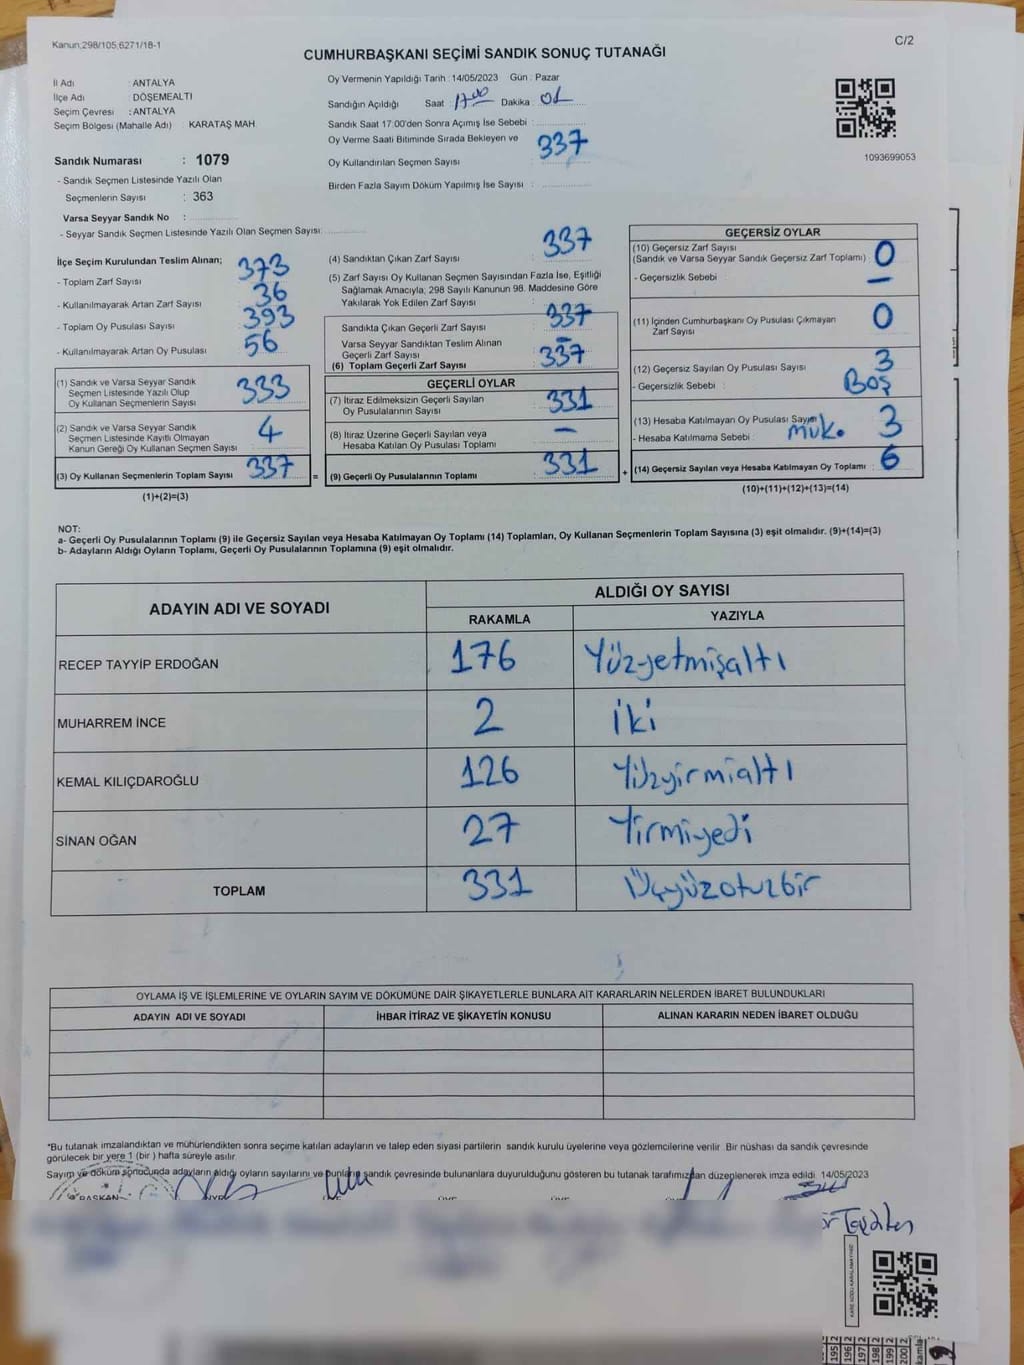 Kanun;298/105,6271/18-1
C/2
CUMHURBAŞKANI SEÇİMİ SANDIK SONUÇ TUTANAĞI
İl Adı : ANTALYA
İlçe Adı : DÖŞEMEALTI
Seçim Çevresi : ANTALYA
Seçim Bölgesi (Mahalle Adı) : KARATAŞ MAH
Sandık Numarası : 1079
- Sandık Seçmen Listesinde Yazılı Olan
Seçmenlerin Sayısı : 363
Varsa Seyyar Sandık No :
- Seyyar Sandık Seçmen Listesinde Yazılı Olan Seçmen Sayısı:
Oy Vermenin Yapıldığı Tarih : 14/05/2023 Gün : Pazar
Sandığın Açıldığı Saat : 17.00 Dakika : 01
Sandık Saat 17:00'den Sonra Açımış İse Sebebi :
Oy Verme Saati Bitiminde Sırada Bekleyen ve
Oy Kullandırılan Seçmen Sayısı 337
Birden Fazla Sayım Döküm Yapılmış İse Sayısı :
1093699053
İlçe Seçim Kurulundan Teslim Alınan;
- Toplam Zarf Sayısı 373
- Kullanılmayarak Artan Zarf Sayısı 36
- Toplam Oy Pusulası Sayısı 393
- Kullanılmayarak Artan Oy Pusulası 56
(1) Sandık ve Varsa Seyyar Sandık
Seçmen Listesinde Yazılı Olup
Oy Kullanan Seçmenlerin Sayısı 333
(2) Sandık ve Varsa Seyyar Sandık
Seçmen Listesinde Kayıtlı Olmayan
Kanun Gereği Oy Kullanan Seçmen Sayısı 4
(3) Oy Kullanan Seçmenlerin Toplam Sayısı 337
(1)+(2)=(3)
(4) Sandıktan Çıkan Zarf Sayısı 337
(5) Zarf Sayısı Oy Kullanan Seçmen Sayısından Fazla İse, Eşitliği
Sağlamak Amacıyla, 298 Sayılı Kanunun 98. Maddesine Göre
Yakılarak Yok Edilen Zarf Sayısı
Sandıkta Çıkan Geçerli Zarf Sayısı 337
Varsa Seyyar Sandıktan Teslim Alınan
Geçerli Zarf Sayısı –
(6) Toplam Geçerli Zarf Sayısı 337
GEÇERLİ OYLAR
(7) İtiraz Edilmeksizin Geçerli Sayılan
Oy Pusulalarının Sayısı 331
(8) İtiraz Üzerine Geçerli Sayılan veya
Hesaba Katılan Oy Pusulası Toplamı –
= (9) Geçerli Oy Pusulalarının Toplamı 331
+
GEÇERSİZ OYLAR
(10) Geçersiz Zarf Sayısı
(Sandık ve Varsa Seyyar Sandık Geçersiz Zarf Toplamı) 0
- Geçersizlik Sebebi : –
(11) İçinden Cumhurbaşkanı Oy Pusulası Çıkmayan
Zarf Sayısı 0
(12) Geçersiz Sayılan Oy Pusulası Sayısı 3
- Geçersizlik Sebebi : Boş
(13) Hesaba Katılmayan Oy Pusulası Sayısı 3
- Hesaba Katılmama Sebebi : mük.
(14) Geçersiz Sayılan veya Hesaba Katılmayan Oy Toplamı : 6
(10)+(11)+(12)+(13)=(14)
NOT:
a- Geçerli Oy Pusulalarının Toplamı (9) ile Geçersiz Sayılan veya Hesaba Katılmayan Oy Toplamı (14) Toplamları, Oy Kullanan Seçmenlerin Toplam Sayısına (3) eşit olmalıdır. (9)+(14)=(3)
b- Adayların Aldığı Oyların Toplamı, Geçerli Oy Pusulalarının Toplamına (9) eşit olmalıdır.
ADAYIN ADI VE SOYADI ALDIĞI OY SAYISI
RAKAMLA YAZIYLA
RECEP TAYYİP ERDOĞAN 176 Yüzyetmişaltı
MUHARREM İNCE 2 iki
KEMAL KILIÇDAROĞLU 126 Yüzyirmialtı
SİNAN OĞAN 27 Yirmiyedi
TOPLAM 331 Üçyüzotuzbir
OYLAMA İŞ VE İŞLEMLERİNE VE OYLARIN SAYIM VE DÖKÜMÜNE DAİR ŞİKAYETLERLE BUNLARA AİT KARARLARIN NELERDEN İBARET BULUNDUKLARI
ADAYIN ADI VE SOYADI İHBAR İTİRAZ VE ŞİKAYETİN KONUSU ALINAN KARARIN NEDEN İBARET OLDUĞU
*Bu tutanak imzalandıktan ve mühürlendikten sonra seçime katılan adayların ve talep eden siyasi partilerin sandık kurulu üyelerine veya gözlemcilerine verilir. Bir nüshası da sandık çevresinde
görülecek bir yere 1 (bir ) hafta süreyle asılır.
Sayım ve döküm sonucunda adayların aldığı oyların sayılarını ve bunların sandık çevresinde bulunanlara duyurulduğunu gösteren bu tutanak tarafımızdan düzenlenerek imza edildi. 14/05/2023
BAŞKAN
KARE KODU KARALAMAYINIZ
195 2
196 2
197 2
198 2
199 2
200 2